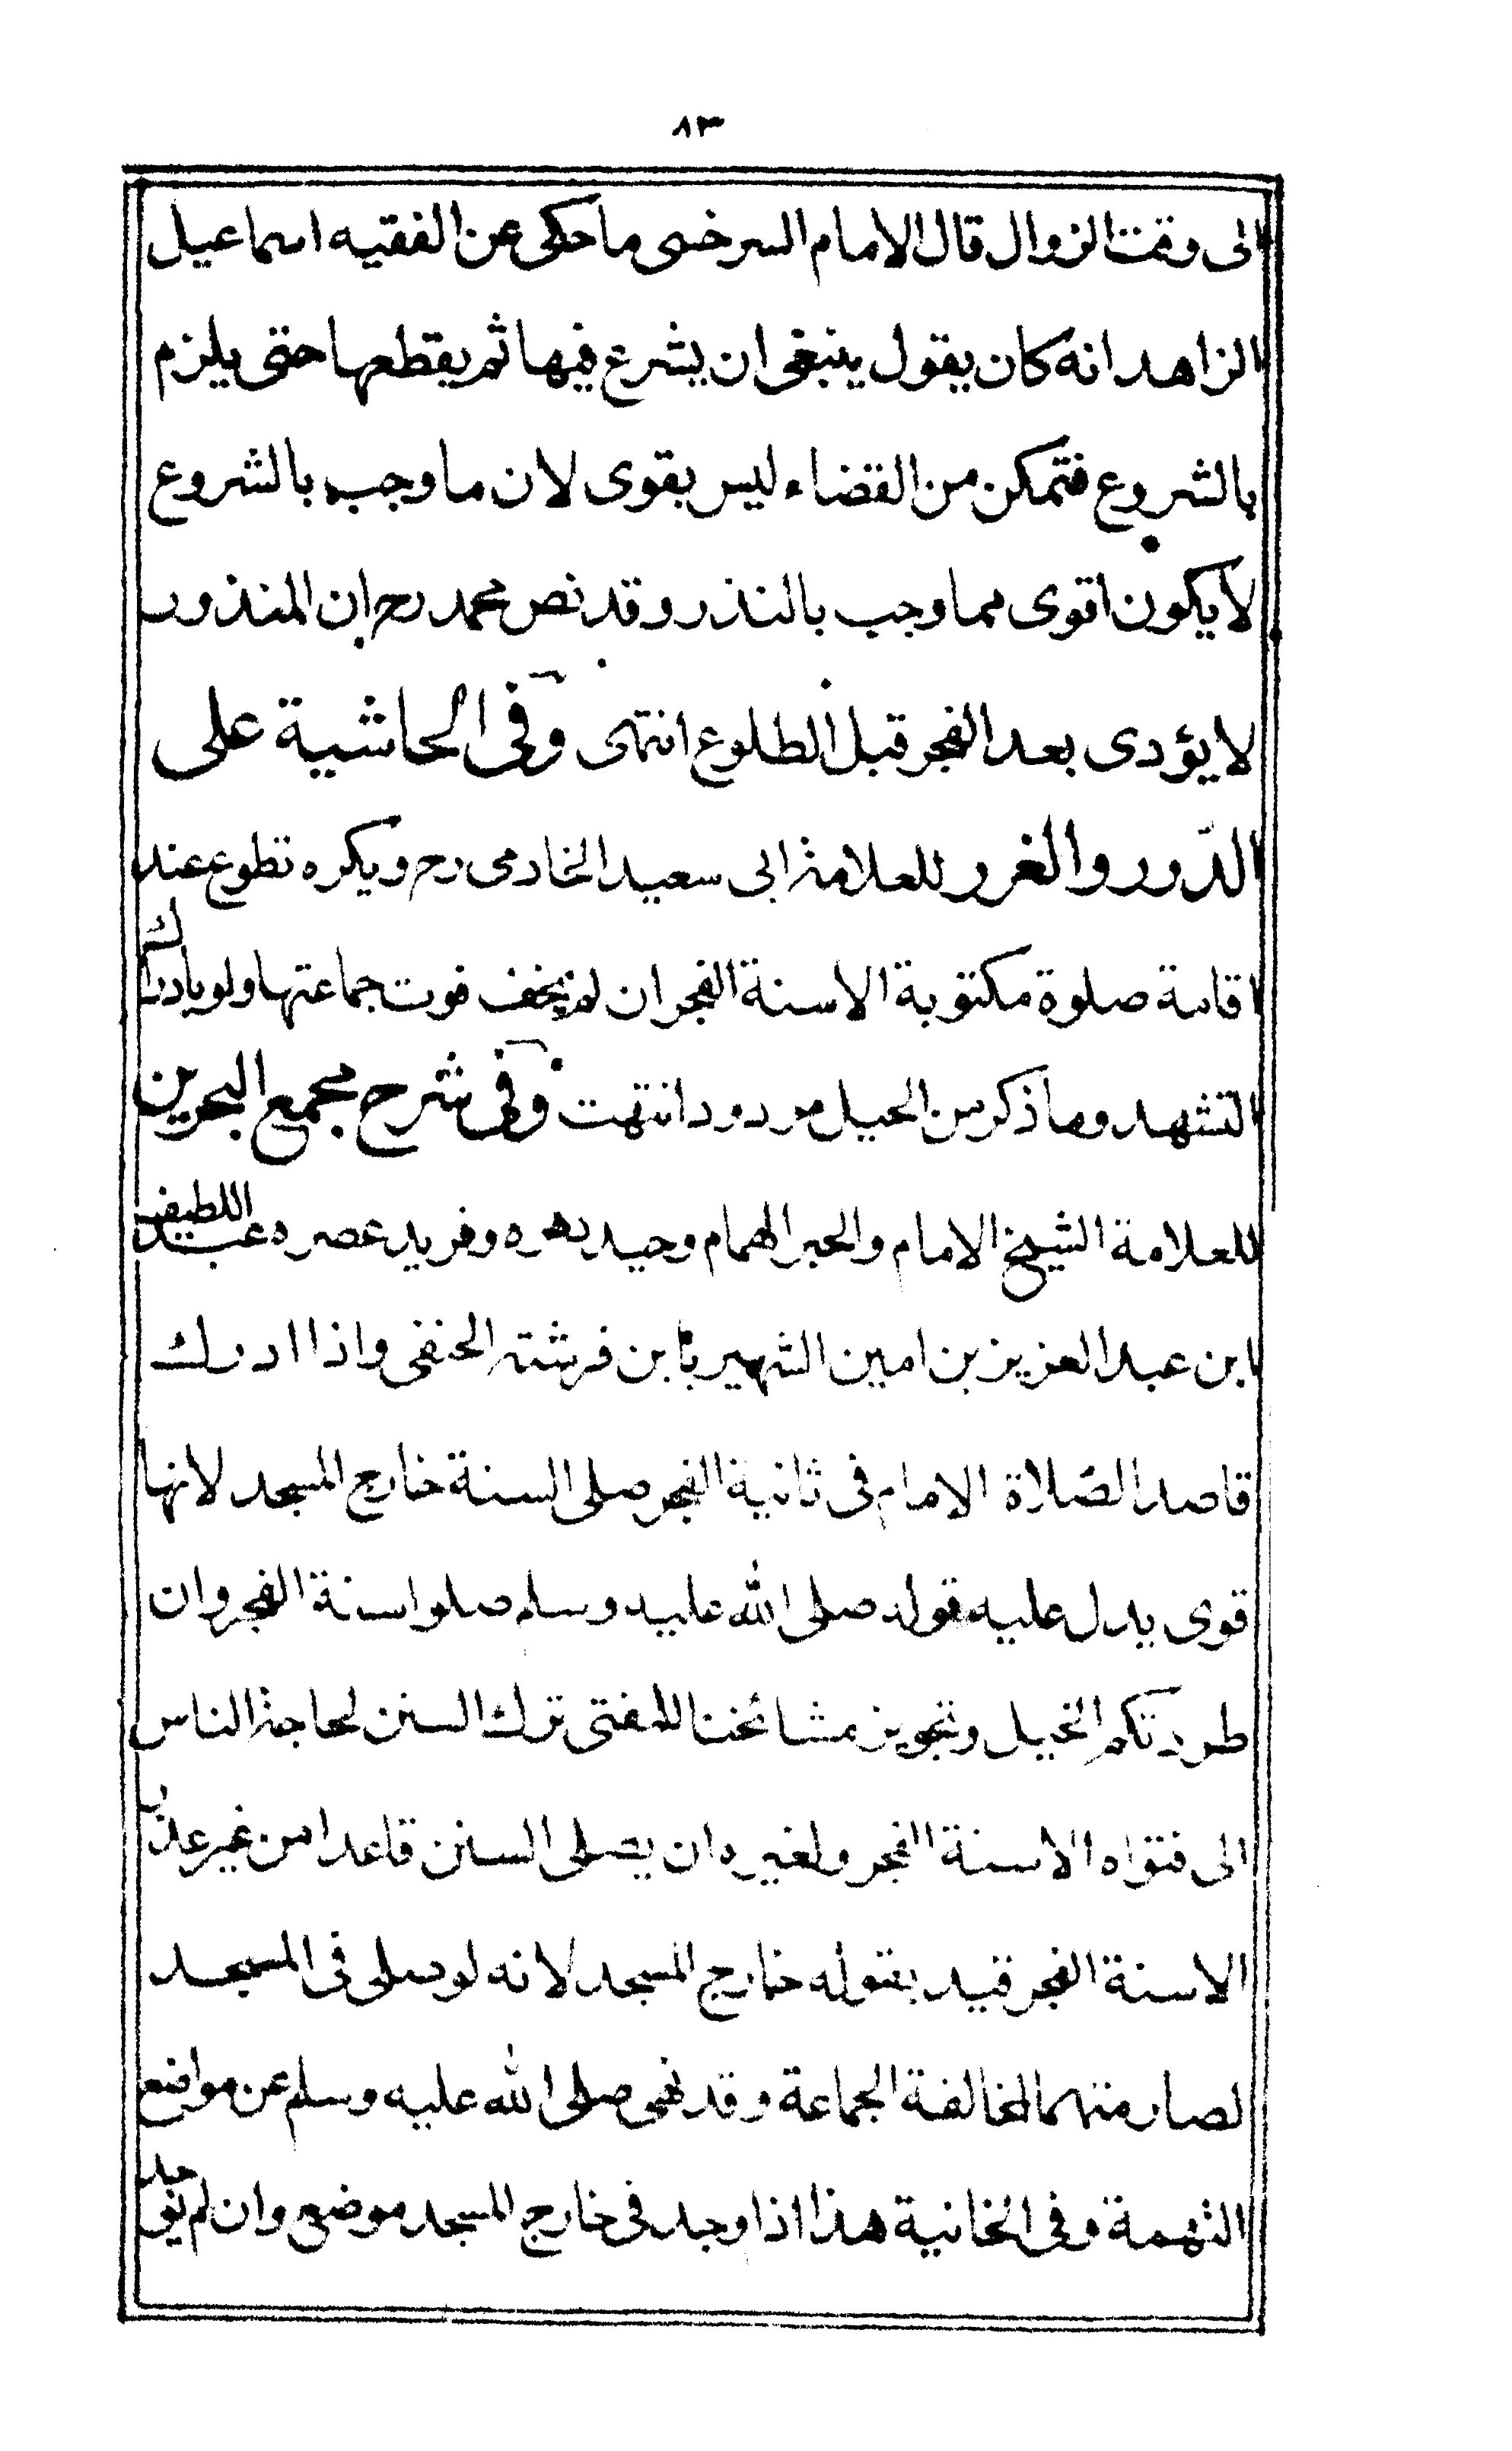 ٨٣
الى وقت الزوال قال الامام السرخسى ما حكى عن الفقيه اسماعيل
الزاهد انه كان يقول ينبغى ان يشرع فيها ثم يقطعها حتى يلزم
بالشروع فتمكن من القضاء ليس بقوى لان ما وجب بالشروع
لا يكون اقوى مما وجب بالنذر وقد نص محمد رح ان المنذور
لا يؤدى بعد الفجر قبل الطلوع انتهى وفى الحاشية على
الدّرر والغرر للعلامة ابى سعيد الخادمى رح ويكره تطوع عند
اقامة صلوة مكتوبة الا سنة الفجر ان لم يخف فوت جماعتها ولو بادراك
التشهد وما ذكر من الحيل مردود انتهت وفى شرح مجمع البحرين
للعلامة الشيخ الامام والحبر الهمام وحيد دهره وفريد عصره عبد اللطيف
ابن عبد العزيز بن امين الشهير بابن فرشته الحنفى واذا ادرك
قاصد الصّلاة الامام فى ثانية الفجر صلى السنة خارج المسجد لانها
قوى يدل عليه قوله صلى الله عليه وسلم صلوا سنة الفجر وان
طردتكم الخيل وتجويز مشائخنا للمفتى ترك السنن لحاجة الناس
الى فتواه الا سنة الفجر ولغيره ان يصلى السنن قاعدا من غير عذر
الا سنة الفجر قيد بقوله خارج المسجد لانه لو صلى فى المسجد
لصار متهما لمخالفة الجماعة وقد نهى صلى الله عليه وسلم عن مواضع
التهمة وفى الخانية هذا اذا وجد فى خارج المسجد موضع وان لم يوجد